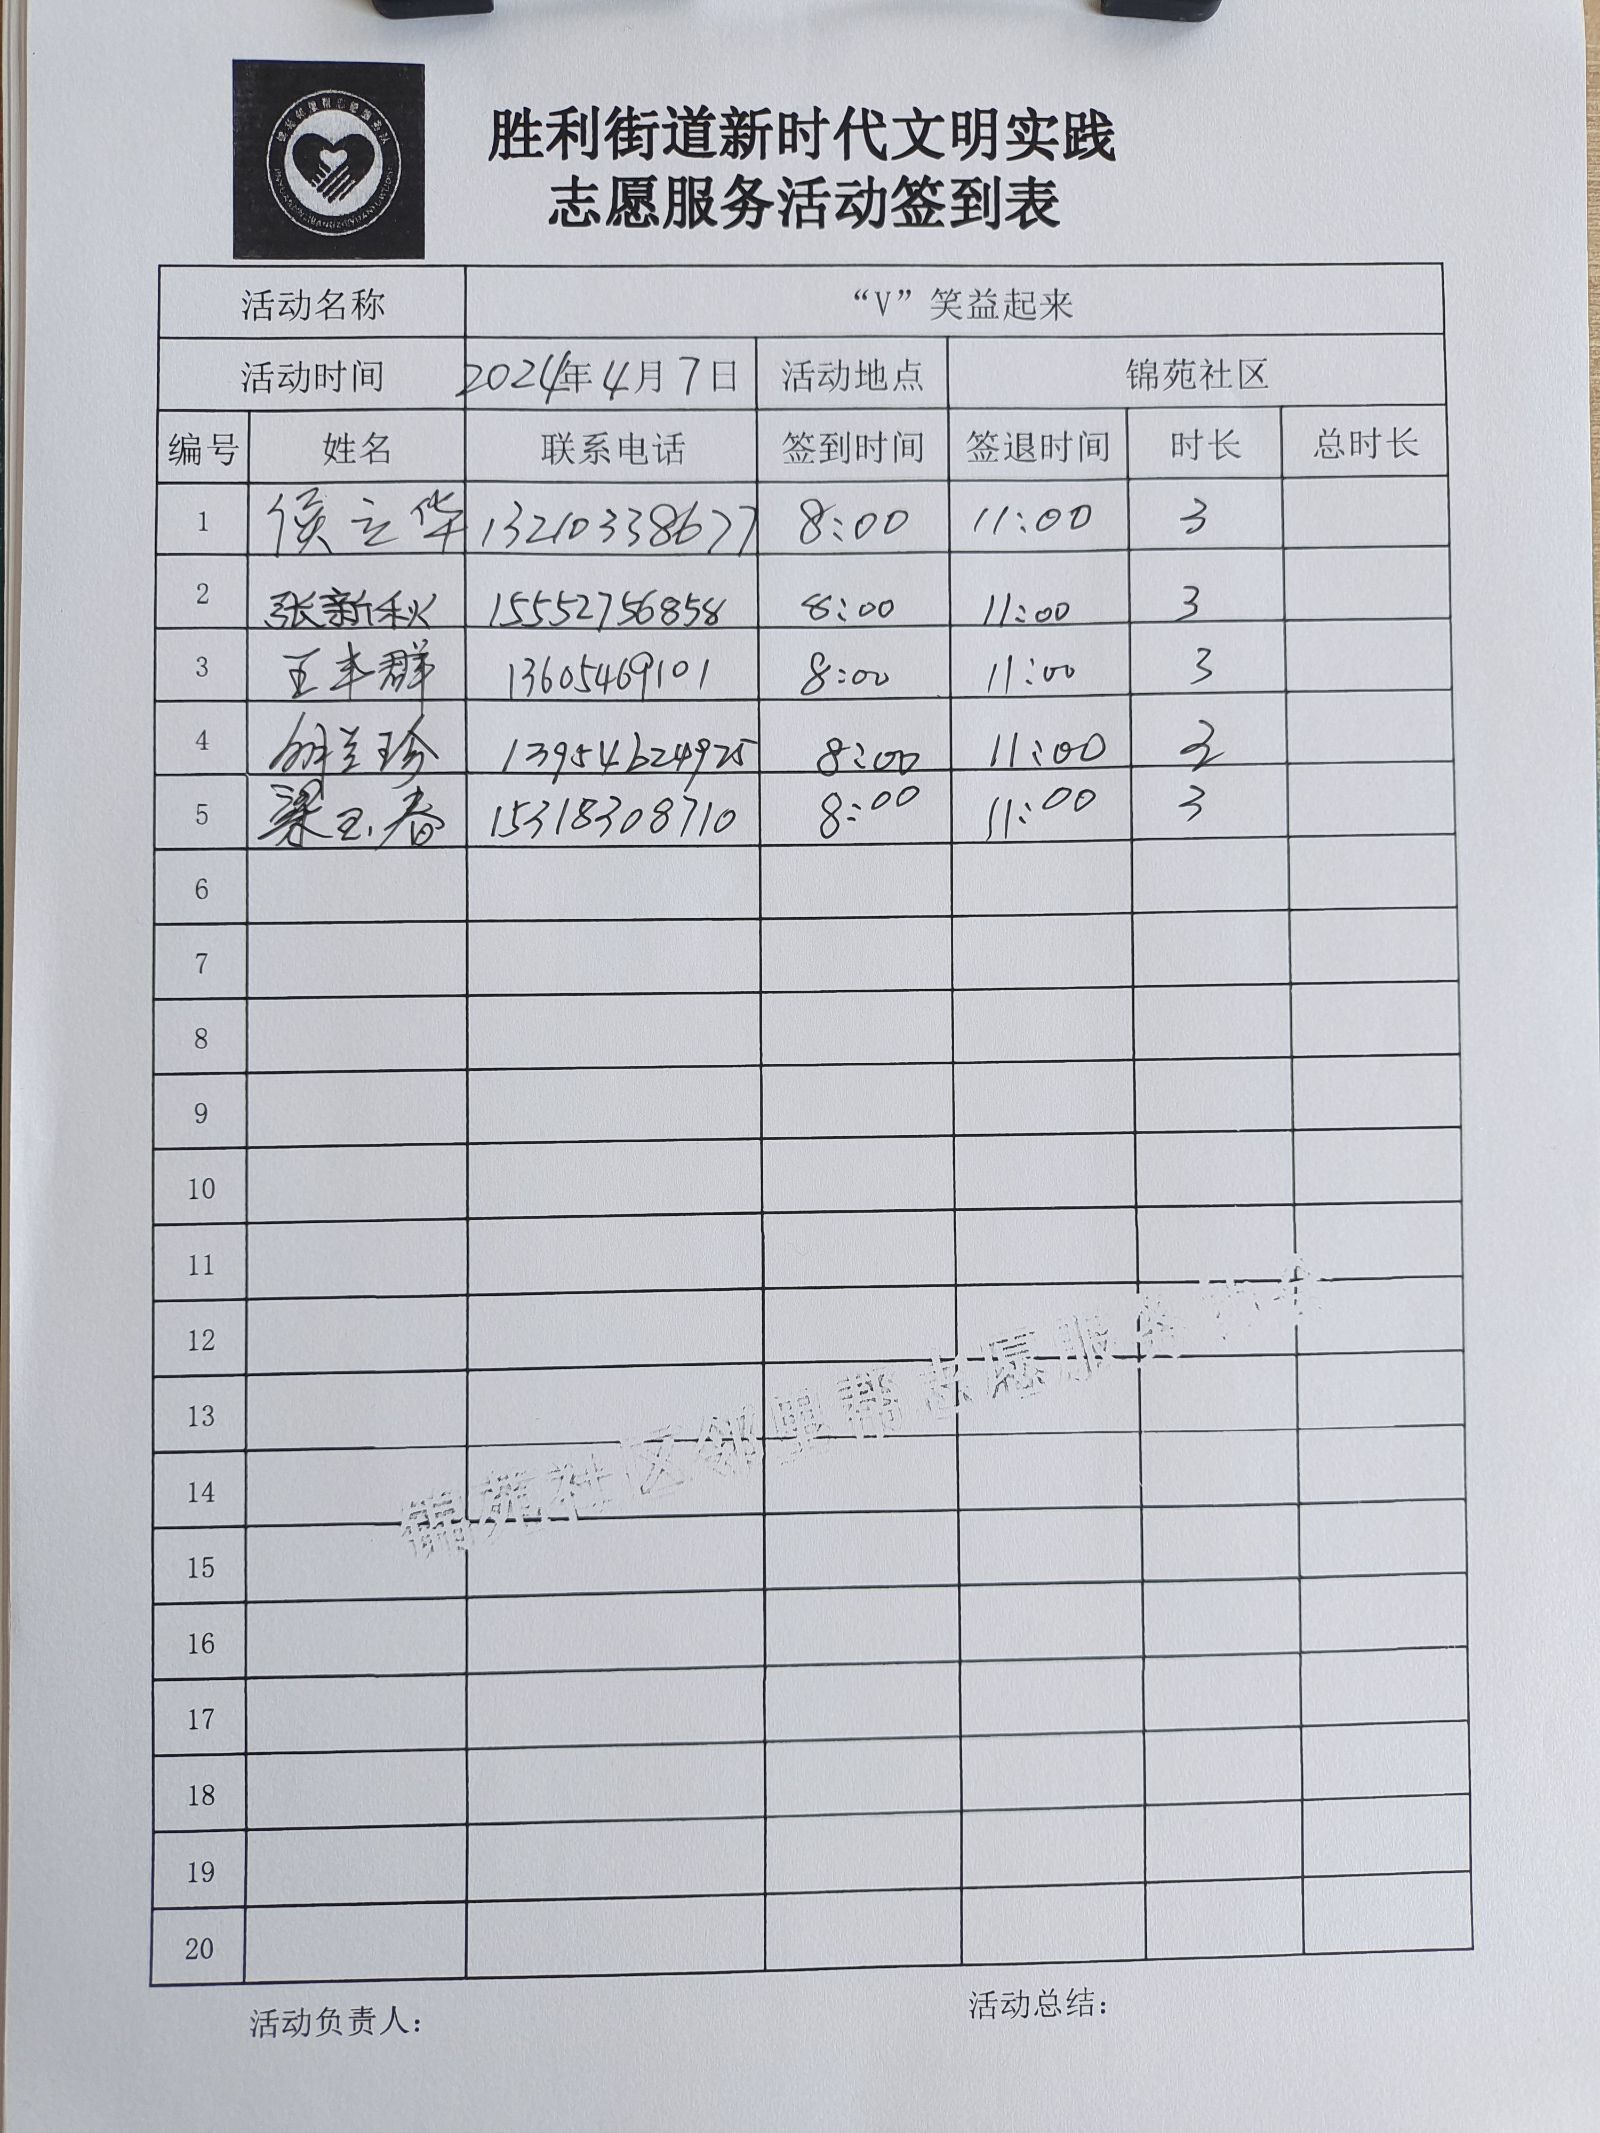 胜利街道新时代文明实践
志愿服务活动签到表
活动名称 “V”笑益起来
活动时间 2024年4月7日 活动地点 锦苑社区
编号 姓名 联系电话 签到时间 签退时间 时长 总时长
1 侯立华 13210338677 8:00 11:00 3
2 张新秋 15552756858 8:00 11:00 3
3 王丰群 13605469101 8:00 11:00 3
4 兰珍 13954624925 8:00 11:00 3
5 梁玉春 15318308710 8:00 11:00 3
6
7
8
9
10
11
12
13
14
15
16
17
18
19
20
锦苑社区邻里帮志愿服务协会
活动负责人:
活动总结: